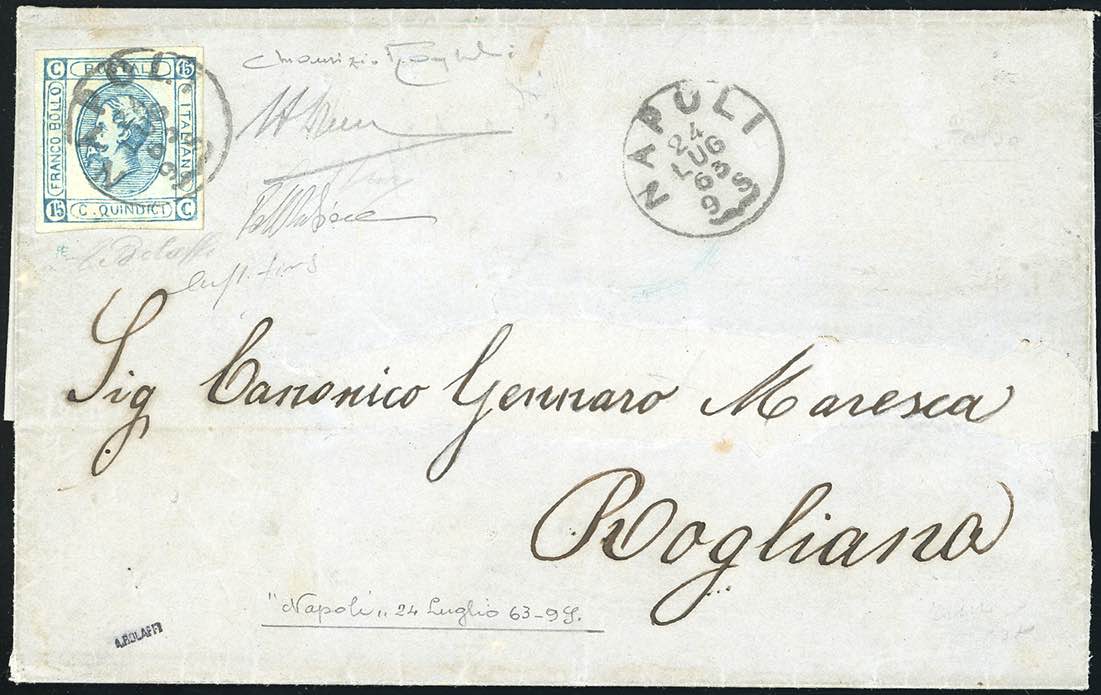 C POSTALE 15
FRANCO BOLLO
ITALIANO
15 C. QUINDICI C
NAPOLI
NAPOLI
24
LUG
63
9 S
Sig Canonico Gennaro Maresca
Rogliano
"Napoli" 24 Luglio 63-9S.
A. BOLAFFI